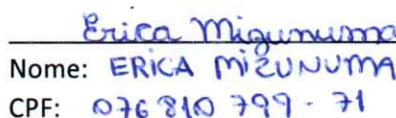 Erica Mizunuma
Nome: ERICA MIZUNUMA
CPF: 076 810 799 - 71